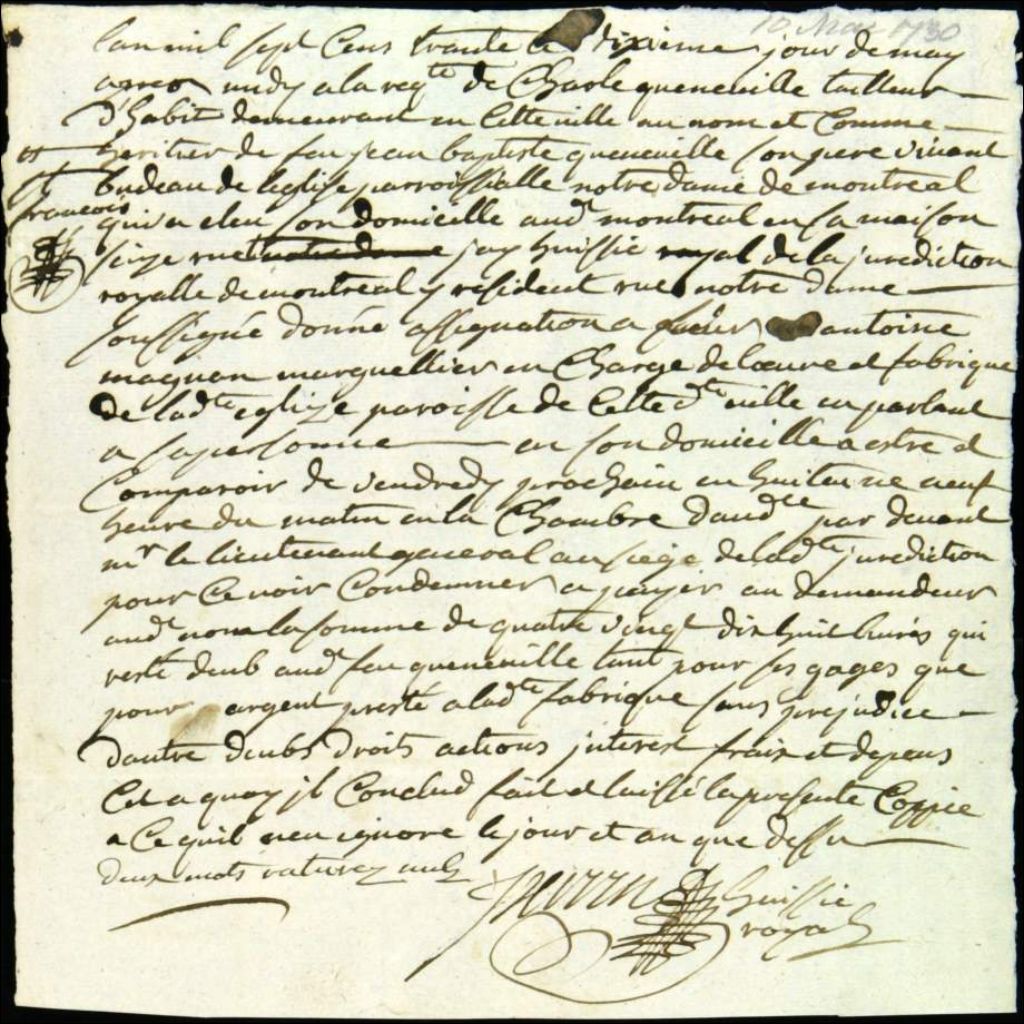 10 Mai 1730
Lan mil sept Cens trante le dixieme jour de may
apres midy a la reqte de Charle queneville tailleur
d'habit demeurant en Cette ville au nom et Comme
heritier de feu jean baptiste queneville son pere vivant
bedeau de leglise parroissialle notre dame de montreal
qui a eleu son domicille audt montreal en sa maison
size rue st francois notre dame jay huissie royal de la jurediction
royalle de montreal y resident rue notre dame
soussigné donné assignation a sieur antoine
magnan marguellier en Charge de lœuvre et fabrique
de ladte eglize paroisse de Cette dte ville en parlant
a sa personne en son domicille a estre et
Comparoir de vendredy prochain en huitenne neuf
heure du matin en la Chambre daudce par devant
mr le lieutenant general au siege de ladte jurediction
pour Ce voir Condemner a payer au demandeur
audt nom la somme de quatre vingt dix huit livres qui
reste deub audt feu queneville tant pour ses gages que
pour argent presté a ladte fabrique sans prejudice
dautre deubs droits actions interest frais et depens
Et a quoy jl Conclud fait et laissé la presente Coppie
a Ce quil nen ignore le jour et an que dessu
deux mots raturez nuls
huissie
royal